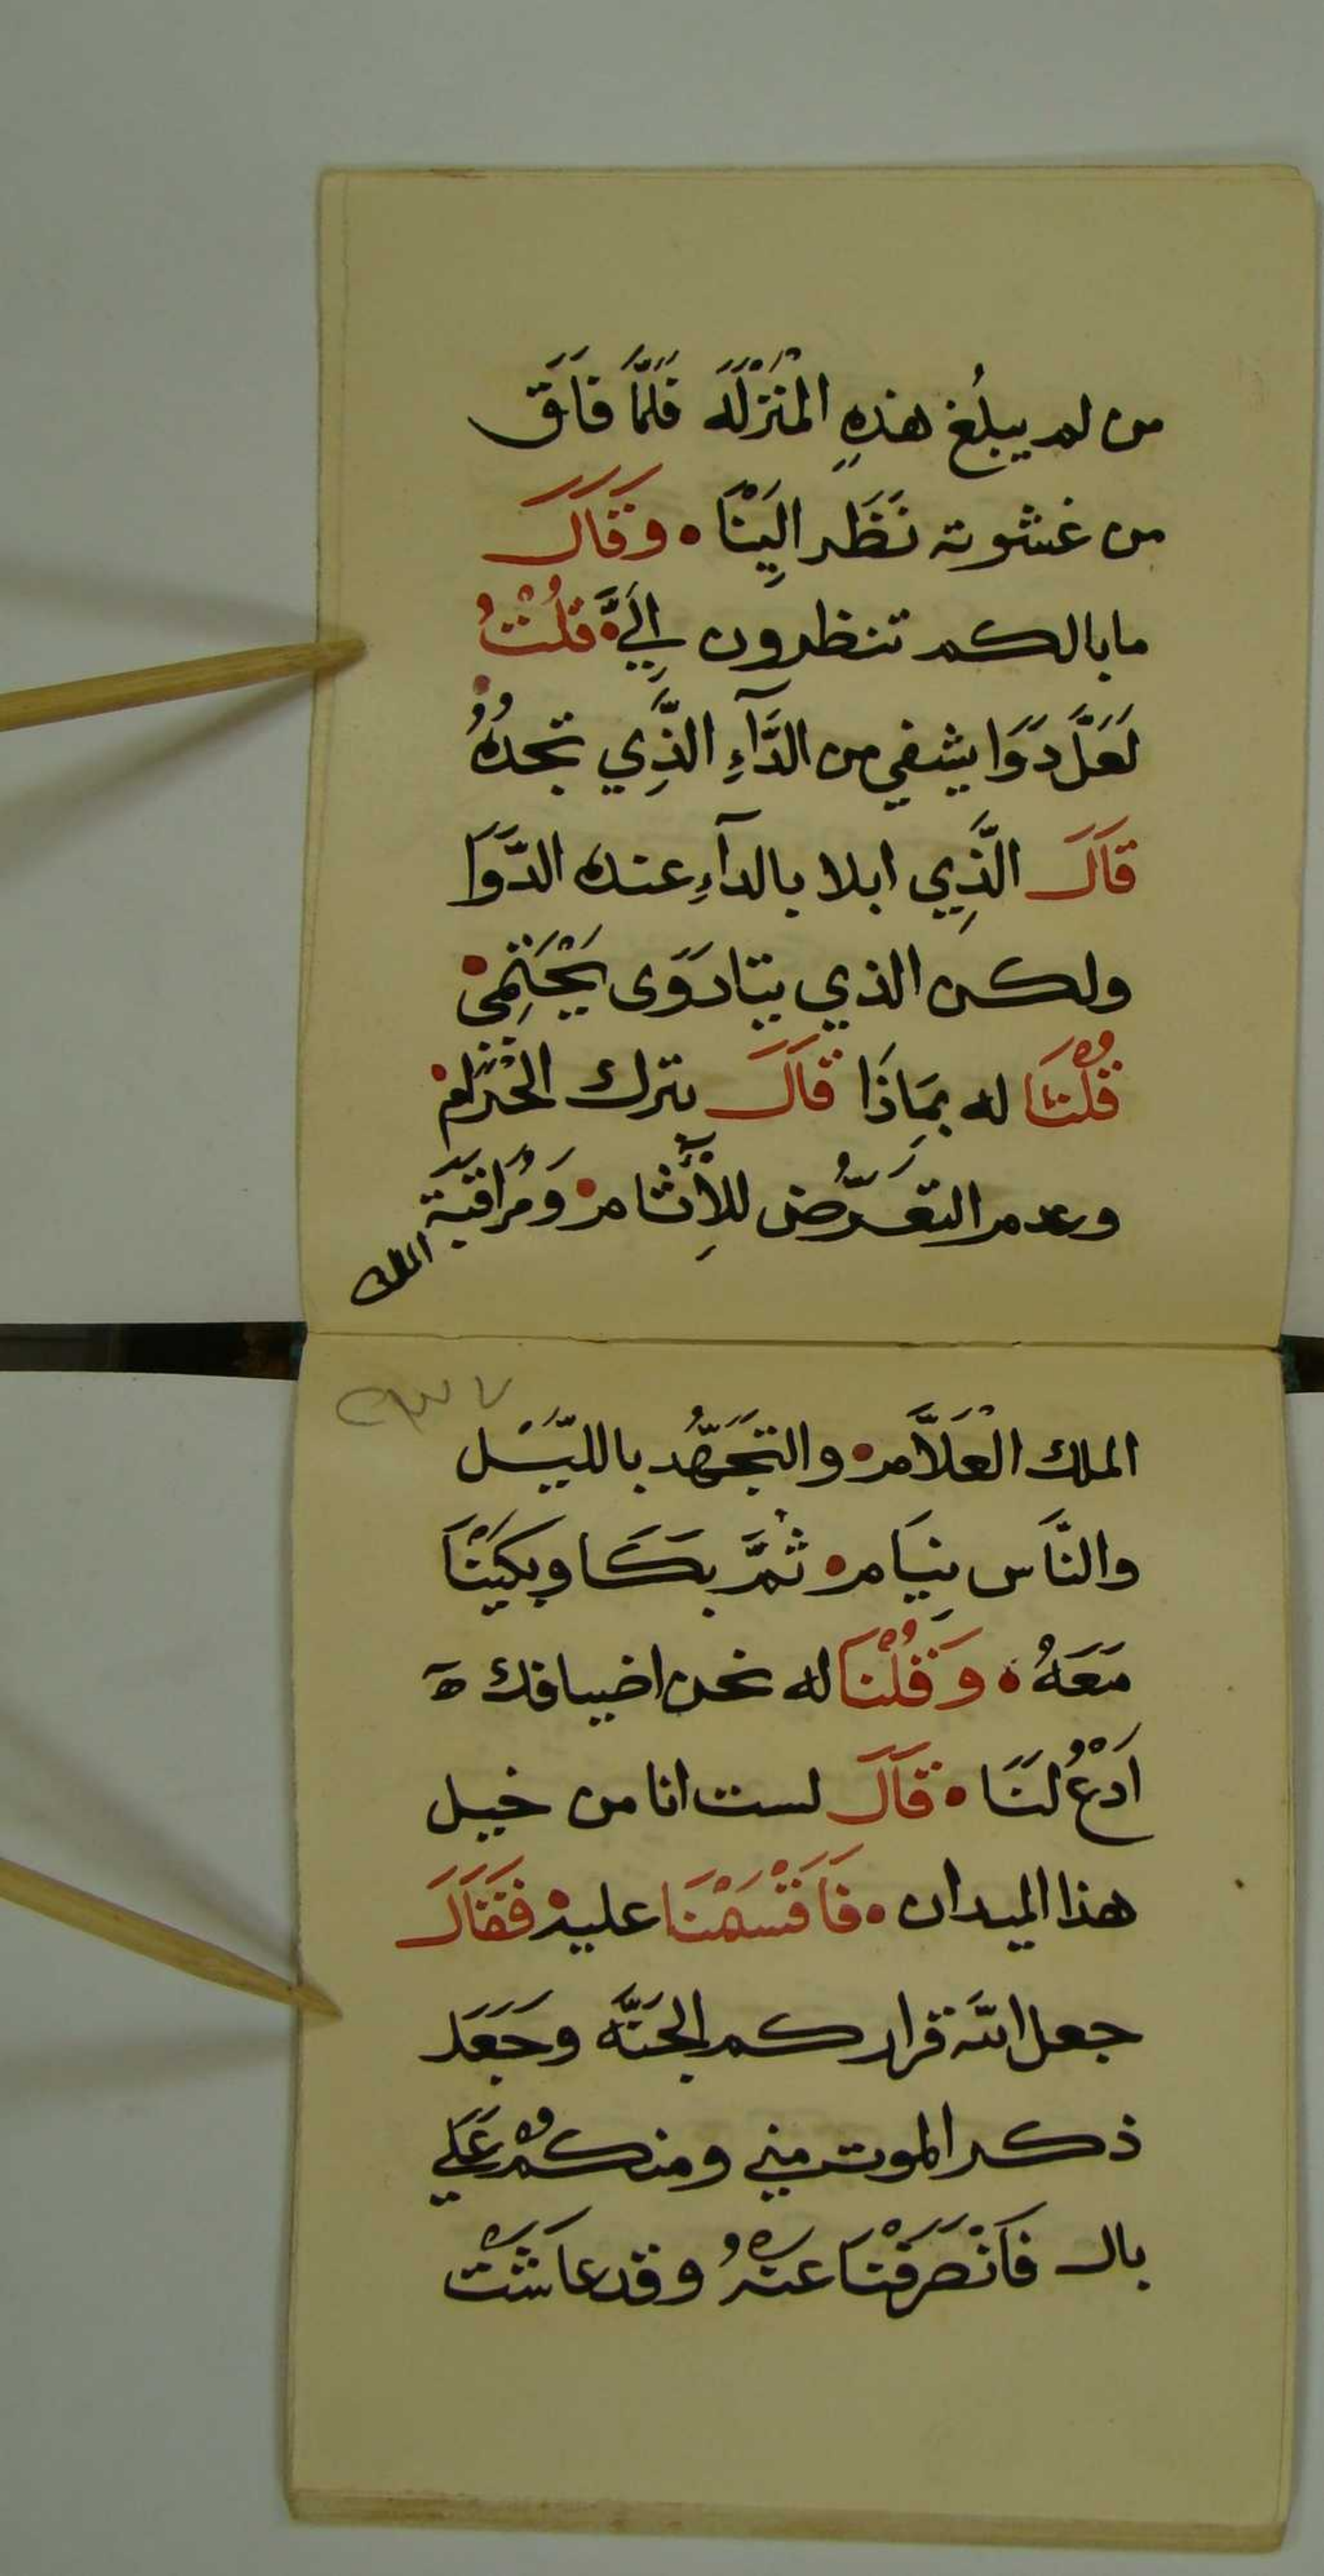 من لم يبلُغ هذهِ المَنْزلَه فَلمَّا فَاقَ
من غشوته نَظَر اليَنْا • وَقَالَ
ما بالكم تنظرون اِليَّ • قُلتُ
لَعَلَّ دَوَا يشفي من الدَّآءِ الذَّي تجدُهُ
قَالَ الَّذِي ابلا بالدآءِ عنده الدَّوَا
ولكن الذي يتادَوَى يَحْتَمِى •
قُلْنَا له بمَاذَا قَالَ بترك الحْرَام •
وعدم التعَرُّض للأِثَام • وَمُرَاقَبَة
الملك
٢٣٧
الملك العْلَاَّم • والتجَهُّد بالليَّل
والنَّاس نِيَام • ثمَّ بكَا وبكَيْنَا
مَعَهُ • وَقُلْنَا له نحن اضيافك ه
اَدْعُ لنَا • قَالَ لست انا من خيل
هذا الميدان • فَاقَسَمْنَا عليه • فَقَالَ
جعل الله قراركم الجنَّه وجَعَل
ذكر الموت مني ومنكمْ عَلَي
بال فَانْصَرَفْنَا عنهُ وقد عاشَتْ